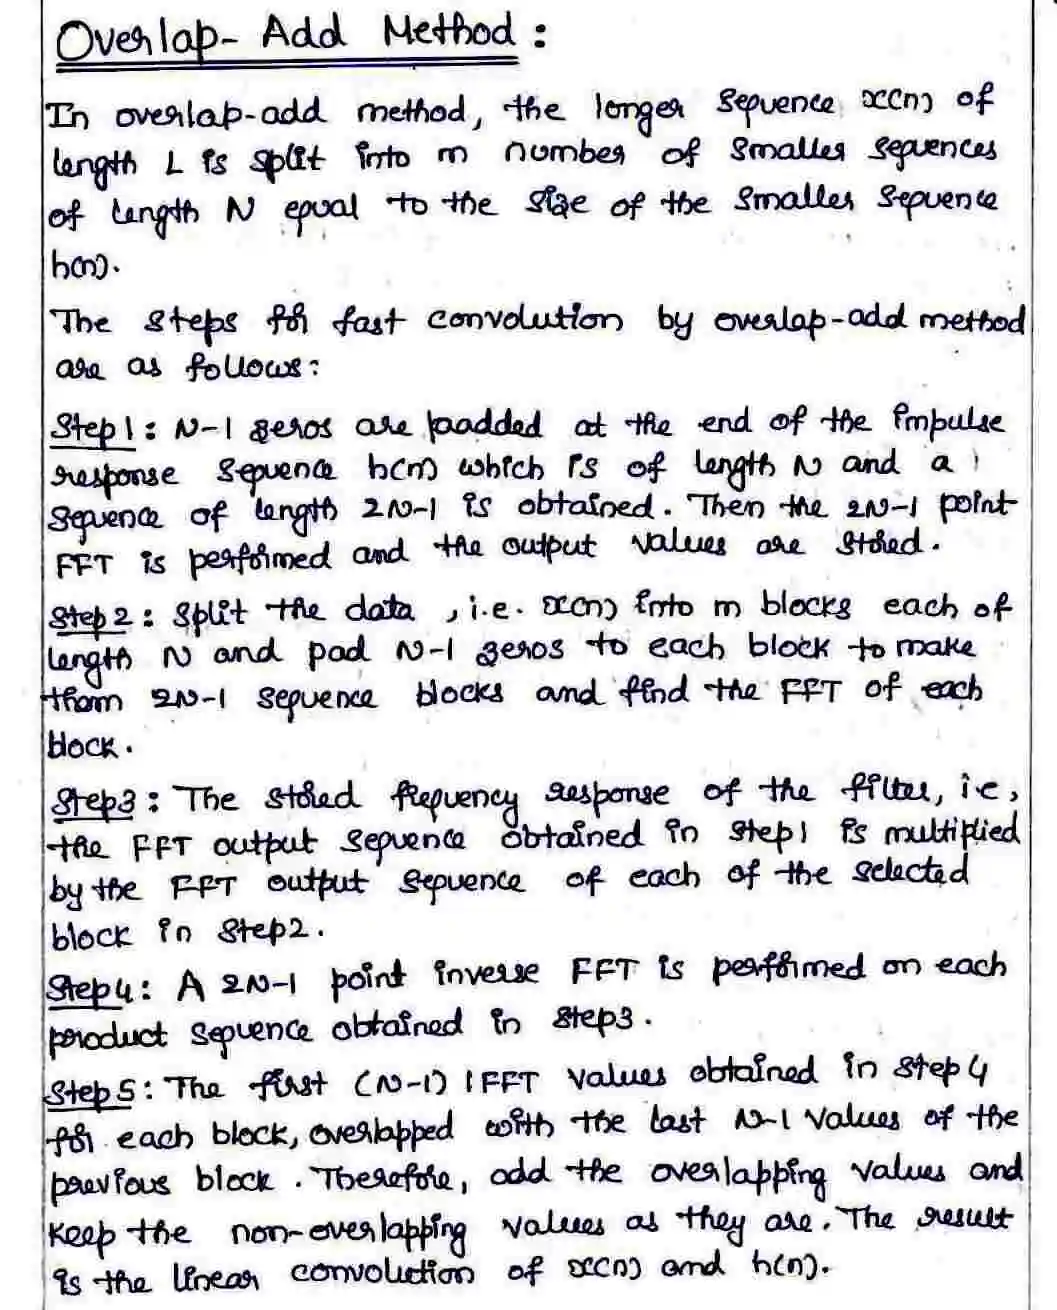 Overlap-Add Method:
In overlap-add method, the longer sequence x(n) of
length L is split into m number of smaller sequences
of length N equal to the size of the smaller sequence
h(n).
The steps for fast convolution by overlap-add method
are as follows:
Step1: N-1 zeros are padded at the end of the impulse
response sequence h(n) which is of length N and a
sequence of length 2N-1 is obtained. Then the 2N-1 point
FFT is performed and the output values are stored.
Step2: Split the data, i.e. x(n) into m blocks each of
length N and pad N-1 zeros to each block to make
them 2N-1 sequence blocks and find the FFT of each
block.
Step3: The stored frequency response of the filter, i.e,
the FFT output sequence obtained in Step1 is multiplied
by the FFT output sequence of each of the selected
block in Step2.
Step4: A 2N-1 point inverse FFT is performed on each
product sequence obtained in Step3.
Step5: The first (N-1) IFFT values obtained in Step4
for each block, overlapped with the last N-1 values of the
previous block. Therefore, add the overlapping values and
keep the non-overlapping values as they are. The result
is the linear convolution of x(n) and h(n).